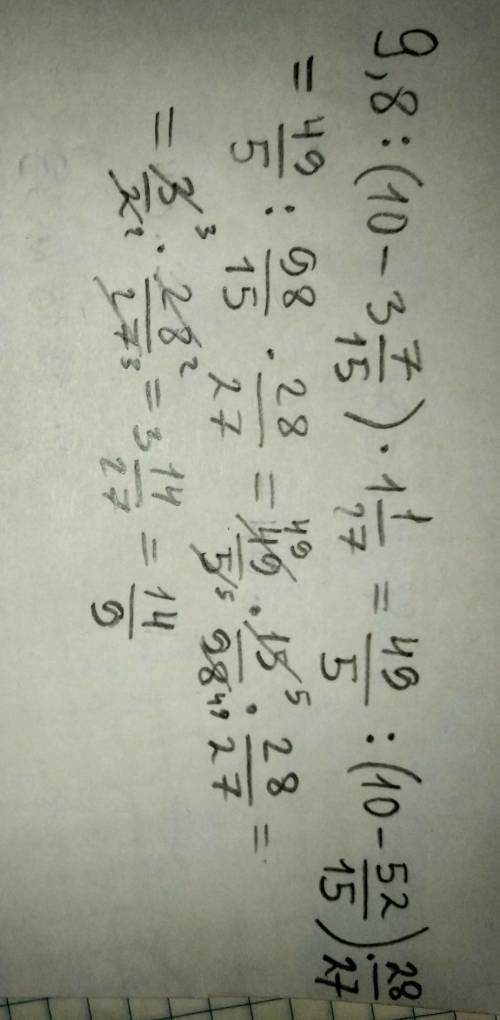 9,8 : (10 - 3 7/15) · 1 1/27 = 49/5 : (10 - 52/15) · 28/27
= 49/5 : 98/15 · 28/27 = 49/5 · 15/98 · 28/27 =
= 3/2 · 28/27 = 3 14/27 = 14/9